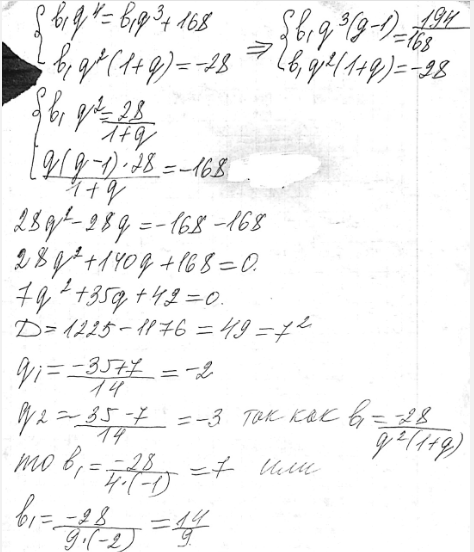 { b₁q⁴ = b₁q³ + 168 ⇒ { b₁q³(q-1) = 194/168
{ b₁q²(1+q) = -28 { b₁q²(1+q) = -28
{ b₁q² = 28/(1+q)
{ q(q-1)·28/(1+q) = -168
28q² - 28q = -168 - 168
28q² + 140q + 168 = 0.
7q² + 35q + 42 = 0.
D = 1225 - 1176 = 49 = 7²
q₁ = (-35+7)/14 = -2
q₂ = (-35-7)/14 = -3 так как b₁ = -28/(q²(1+q))
то b₁ = -28/(4·(-1)) = 7 или
b₁ = -28/(9·(-2)) = 14/9